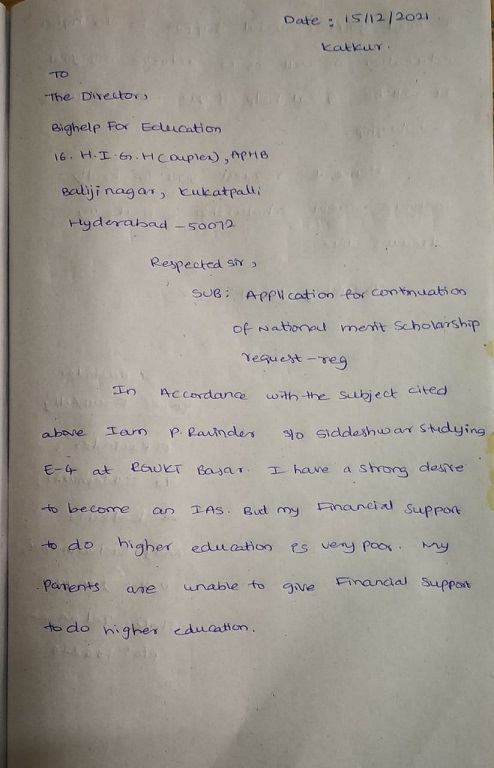 Date : 15/12/2021
Katkur.
TO
The Director,
Bighelp For Education
16. H.I.G.H (Duplex), APHB
Balijinagar, Kukatpalli
Hyderabad - 50072
Respected sir,
SUB: Application for continuation
of National merit Scholarship
request - reg
In Accordance with the subject cited
above I am P. Ravinder S/o Siddeshwar Studying
E-4 at RGUKT Basar. I have a strong desire
to become an IAS. But my Financial Support
to do higher education is very poor. My
Parents are unable to give Financial Support
to do higher education.